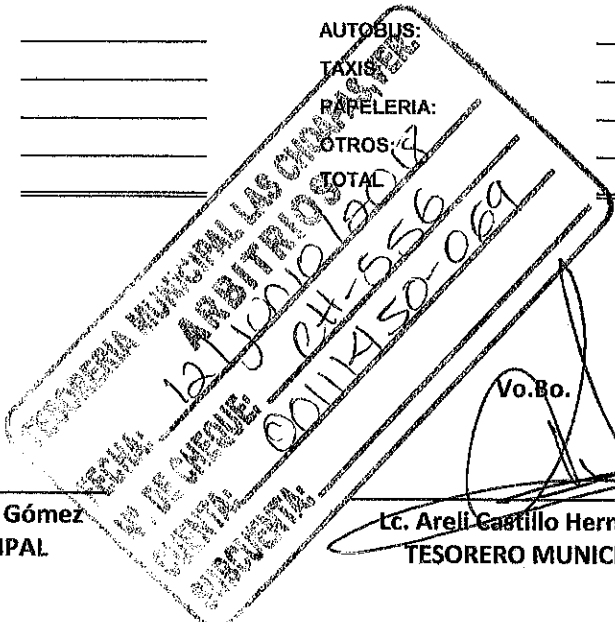 AUTOBUS:
TAXIS:
PAPELERIA:
OTROS:
TOTAL
TESORERIA MUNICIPAL LAS CHOAPAS, VER.
ARBITRIOS
FECHA: 12/Junio/2018
N°. DE CHEQUE: CH-556
CUENTA: 001114150-069
SUBCUENTA:
Vo.Bo.
Gómez
IPAL
Lc. Areli Castillo Hern
TESORERO MUNICI